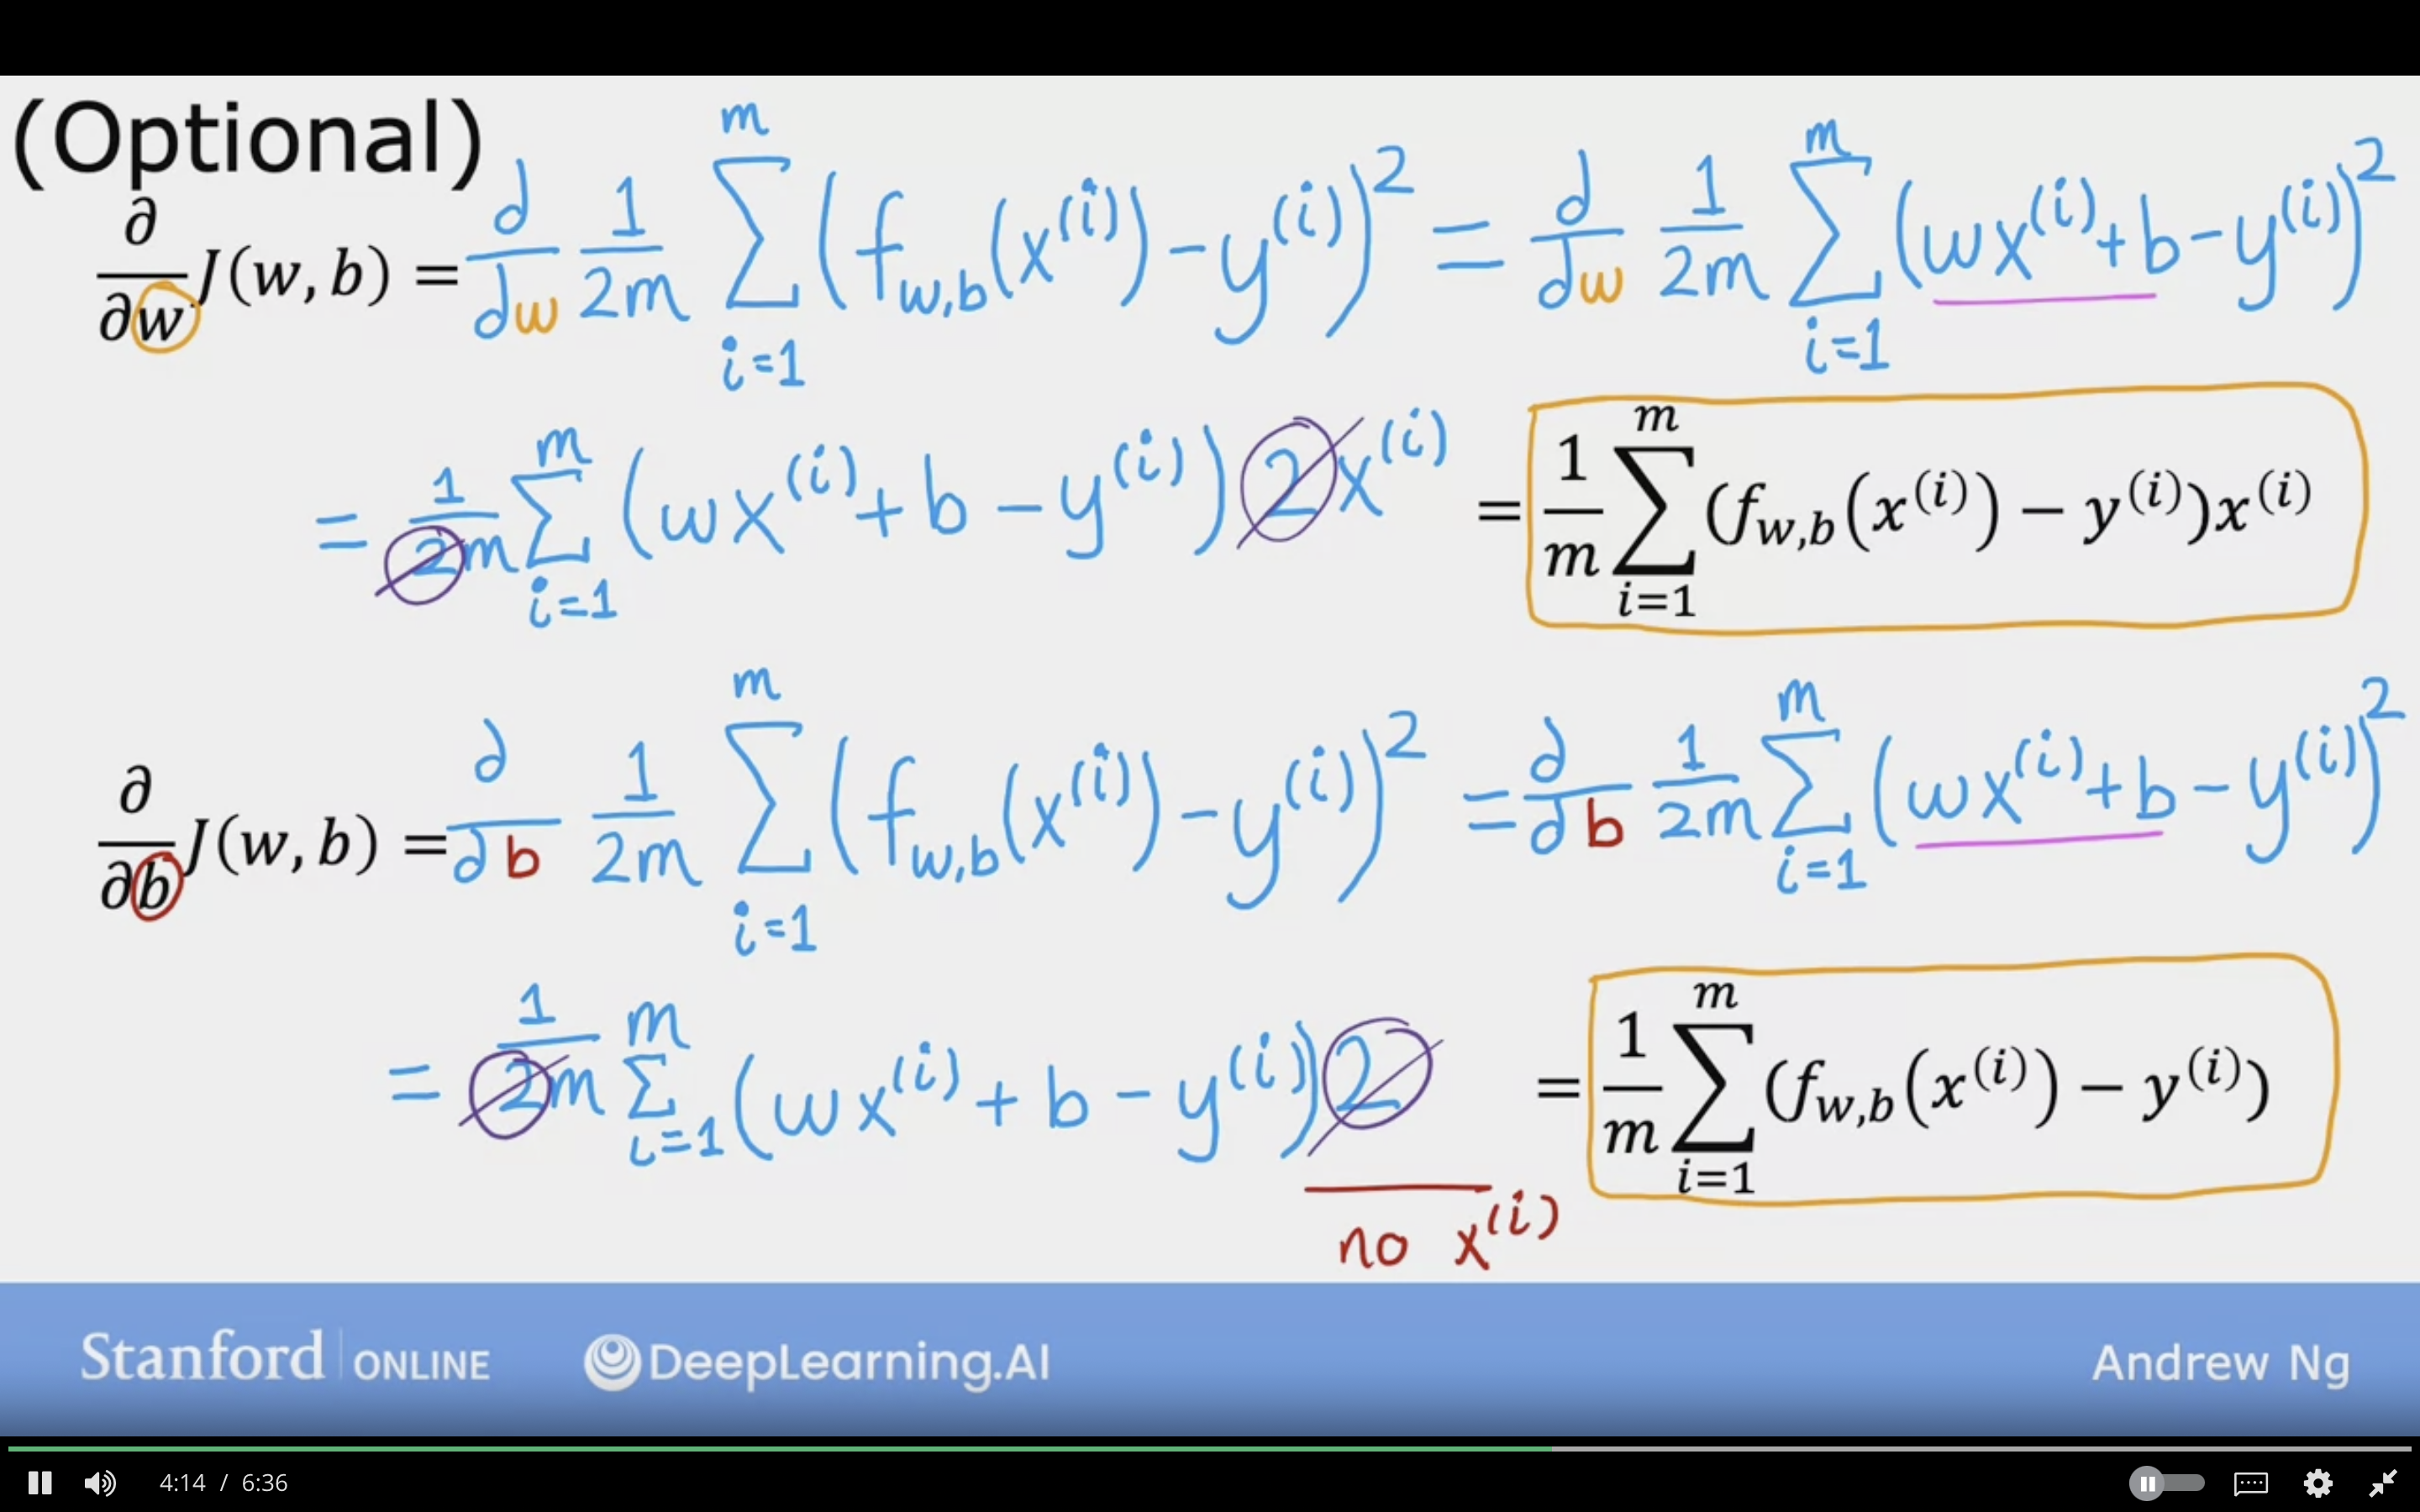 (Optional)
∂/∂w J(w, b) = d/dw 1/2m Σ_{i=1}^{m} (f_{w,b}(x^{(i)}) - y^{(i)})^2 = d/dw 1/2m Σ_{i=1}^{m} (wx^{(i)} + b - y^{(i)})^2
= 1/2m Σ_{i=1}^{m} (wx^{(i)} + b - y^{(i)}) 2x^{(i)} = 1/m Σ_{i=1}^{m} (f_{w,b}(x^{(i)}) − y^{(i)})x^{(i)}
∂/∂b J(w, b) = ∂/∂b 1/2m Σ_{i=1}^{m} (f_{w,b}(x^{(i)}) - y^{(i)})^2 = ∂/∂b 1/2m Σ_{i=1}^{m} (wx^{(i)} + b - y^{(i)})^2
= 1/2m Σ_{i=1}^{m} (wx^{(i)} + b - y^{(i)}) 2 = 1/m Σ_{i=1}^{m} (f_{w,b}(x^{(i)}) − y^{(i)})
no x^{(i)}
Stanford | ONLINE DeepLearning.AI Andrew Ng
4:14 / 6:36